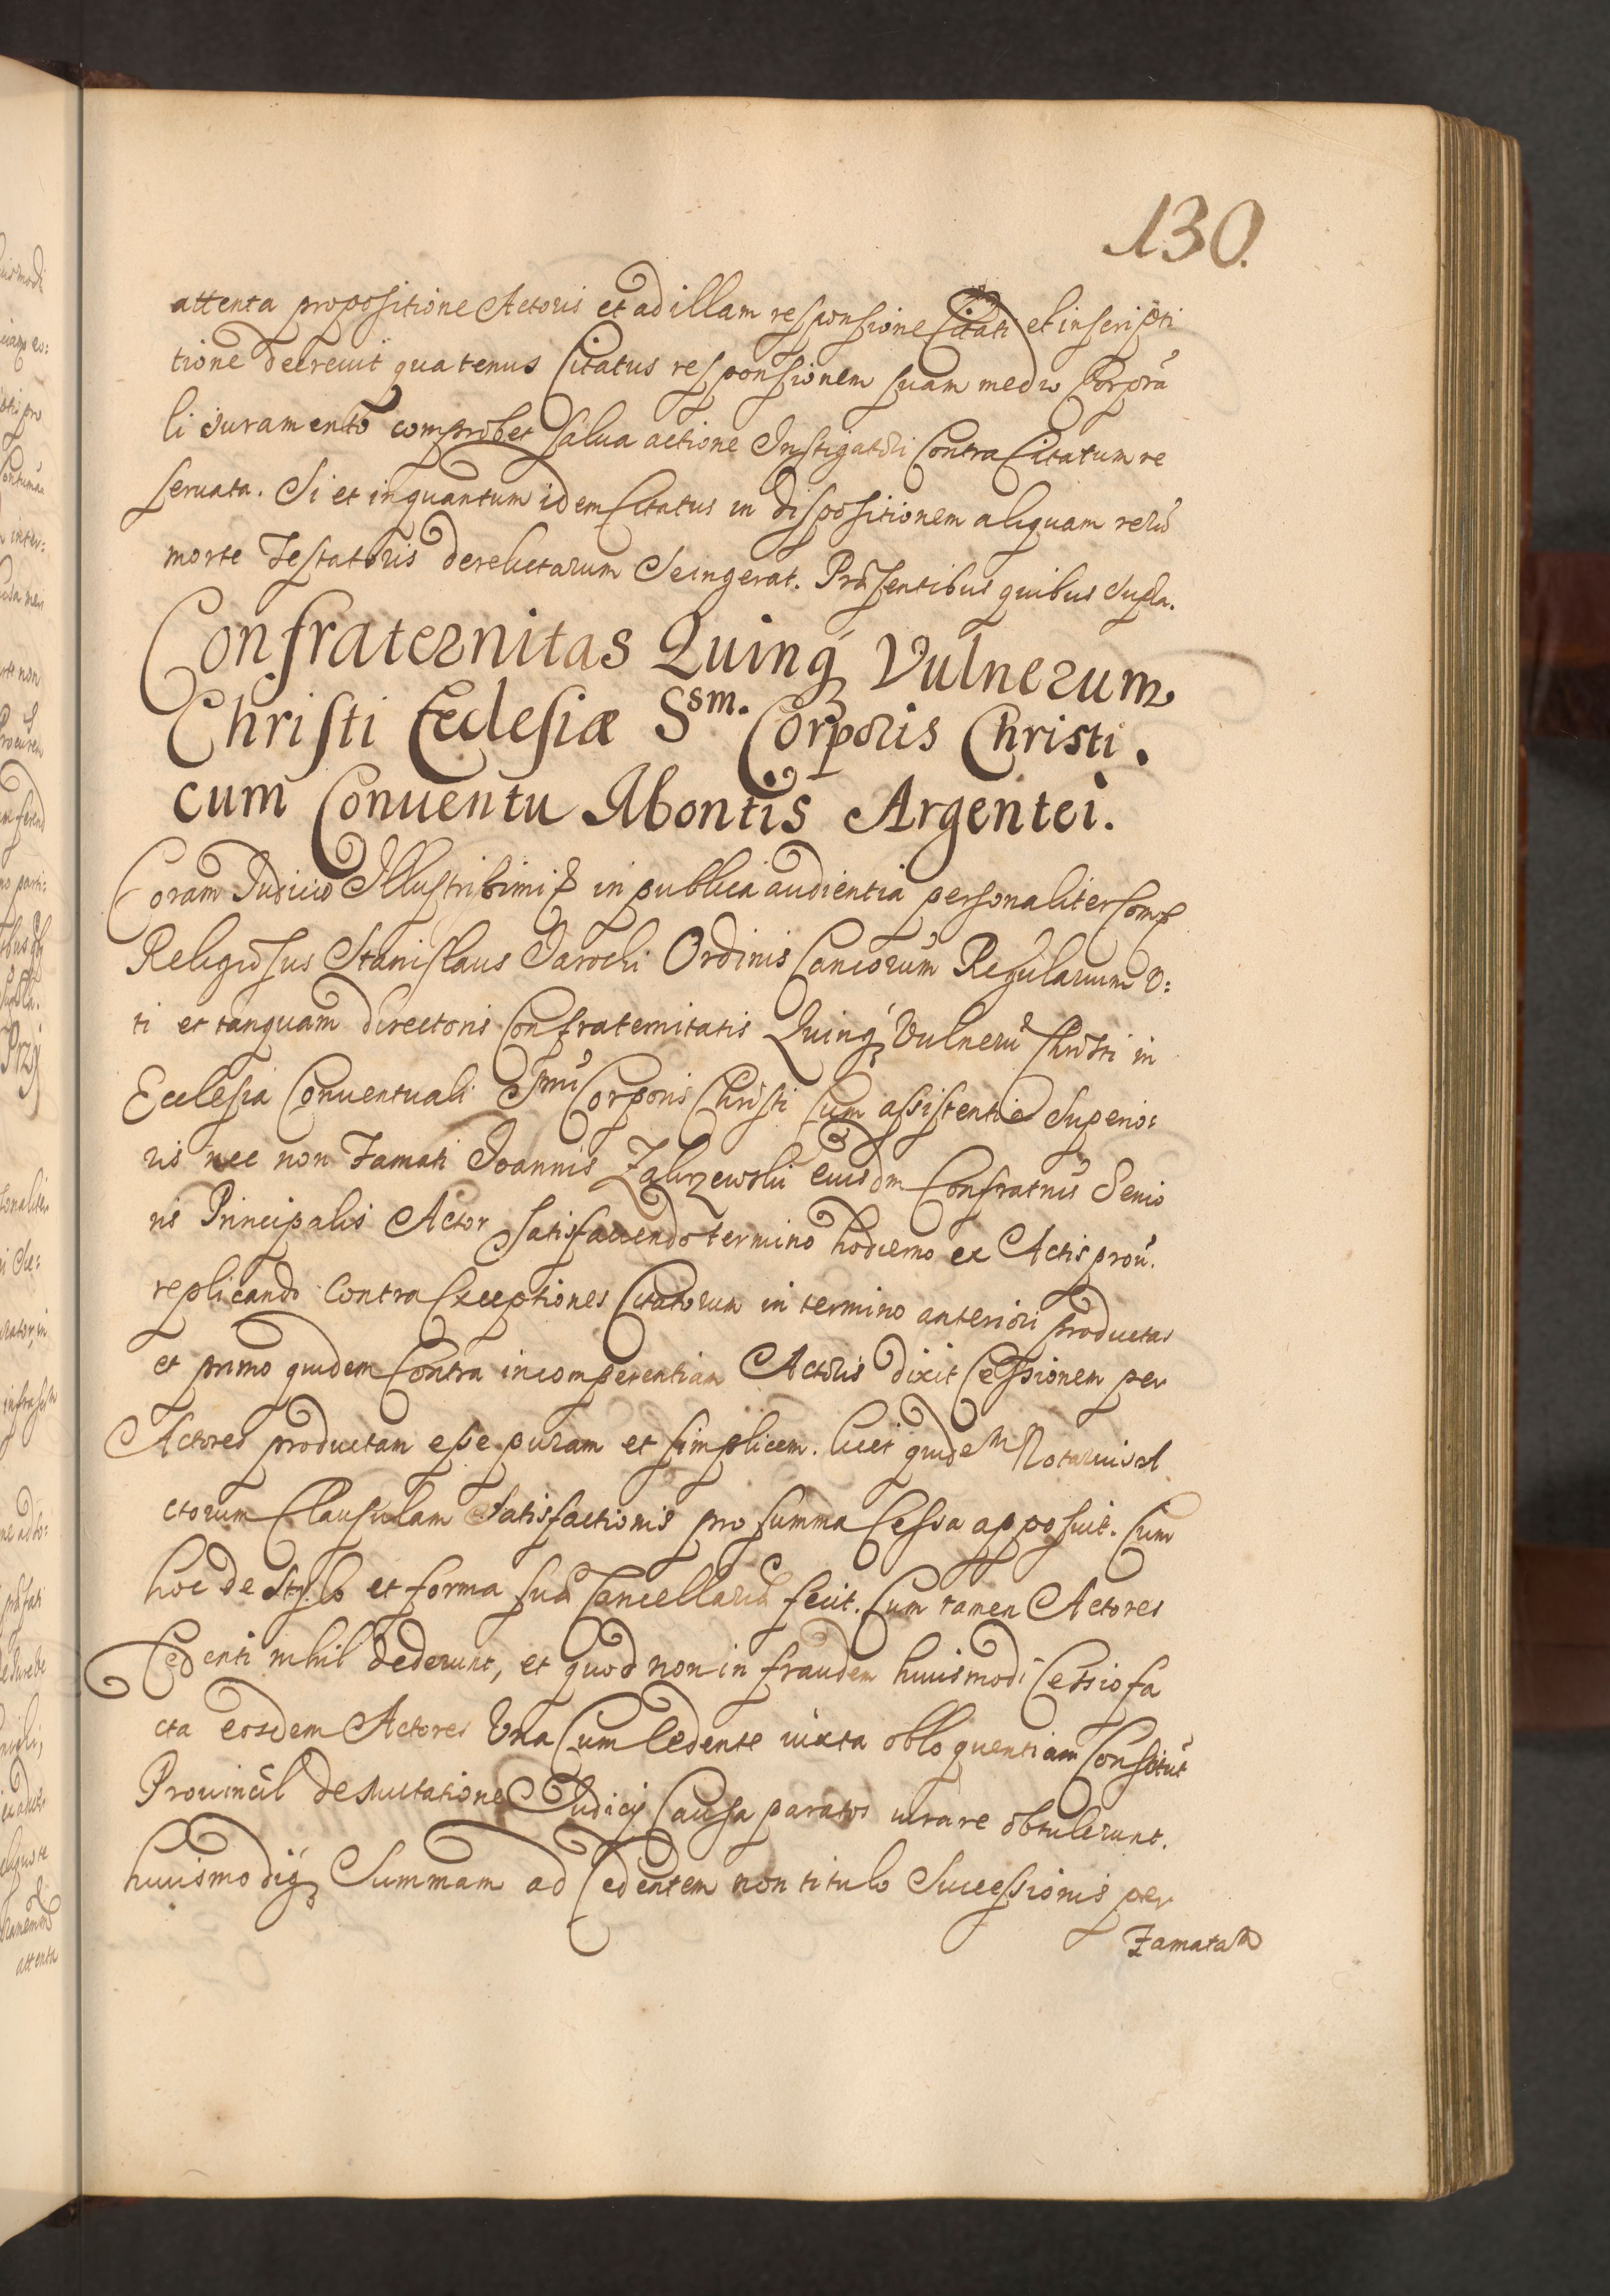 130.
attenta propositione Actoris et ad illam responsione Citati et inscripti
tione decreuit quatenus Citatus responsionem suam medio Corpora
li iuramento comprobet salua actione Instigatori Contra Citatum re
seruata. Si et inquantum idem Citatus in dispositionem aliquam rerũ
morte Testatoris derelictarum Se ingerat. Pręsentibus quibus Supra.
Confraternitas Quinq; Vulnerum
Christi Ecclesiæ Ssm. Corporis Christi.
cum Conuentu Montis Argentei.
Coram Iudicio Illustrissimi in publica audientia personaliter Comp
Religiosus Stanislaus Jarocki Ordinis Cancorum Regularium V:
ti et tanquam directoris Confraternitatis Quinq; Vulnerũ Christi in
Ecclesia Conuentuali Smi Corporis Christi Cum assistentia Superio:
ris nec non Famati Joannis Zakrzewski eiusdm Confratnis Senio
ris Principalis Actor Satisfaciendo termino hodierno ex Actis prou.
replicando Contra Exceptiones Citatorum in termino anteriori productas
et primo quidem Contra incompetentiam Actoris dixit Cessionem per
Actores productam esse puram et simplicem. licet quidem Notarius A
ctorum Clausulam Satisfactionis pro summa Cessa apposuit. Cum
hoc de stylo et forma sua Cancellaria fecit. Cum tamen Actores
Cedenti nihil dederunt, et quod non in fraudem huiusmodi Cessio fa
cta eosdem Actores Una Cum Cedente iuxta obloquentiam Constitut
Prouincil de Mutatione Iudicij Causa paratos iurare obtulerunt.
huiusmodiq; Summam ad Cedentem non titulo Successionis per
Famatam